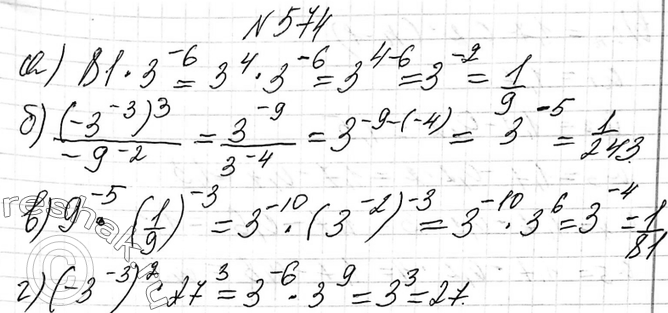 №574
а) 81·3⁻⁶ = 3⁴·3⁻⁶ = 3⁴⁻⁶ = 3⁻² = 1/9
б) (-3⁻³)³/-9⁻² = 3⁻⁹/3⁻⁴ = 3⁻⁹⁻⁽⁻⁴⁾ = 3⁻⁵ = 1/243.
в) 9⁻⁵·(1/9)⁻³ = 3⁻¹⁰·(3⁻²)⁻³ = 3⁻¹⁰·3⁶ = 3⁻⁴ = 1/81
г) (-3⁻³)²·27³ = 3⁻⁶·3⁹ = 3³ = 27.
reshak.ru